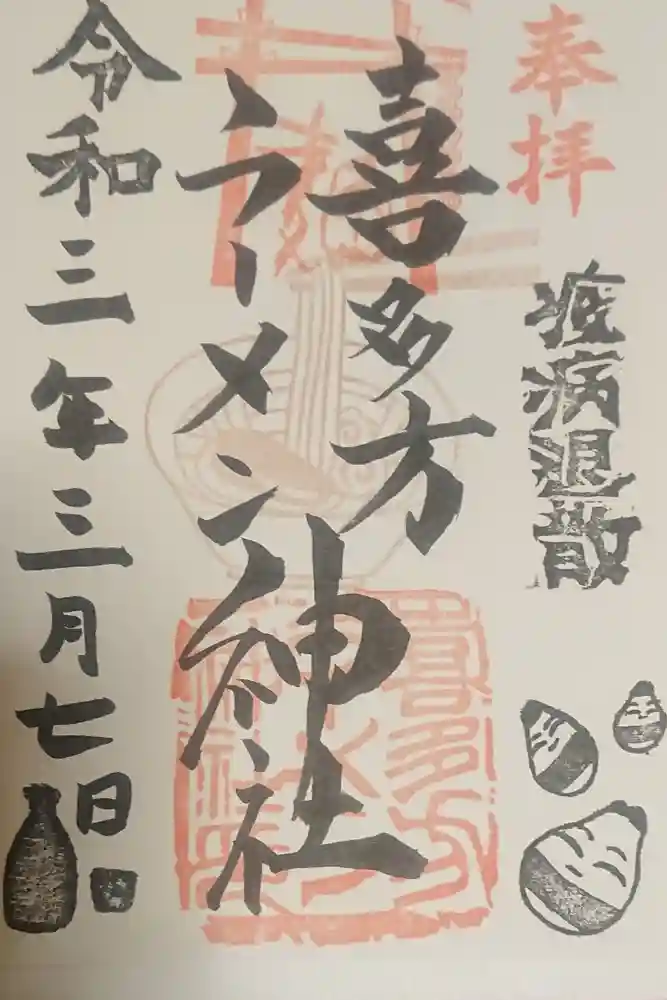 奉拝
疫病退散
喜多方
ラーメン神社
令和三年三月七日
喜多方
神社